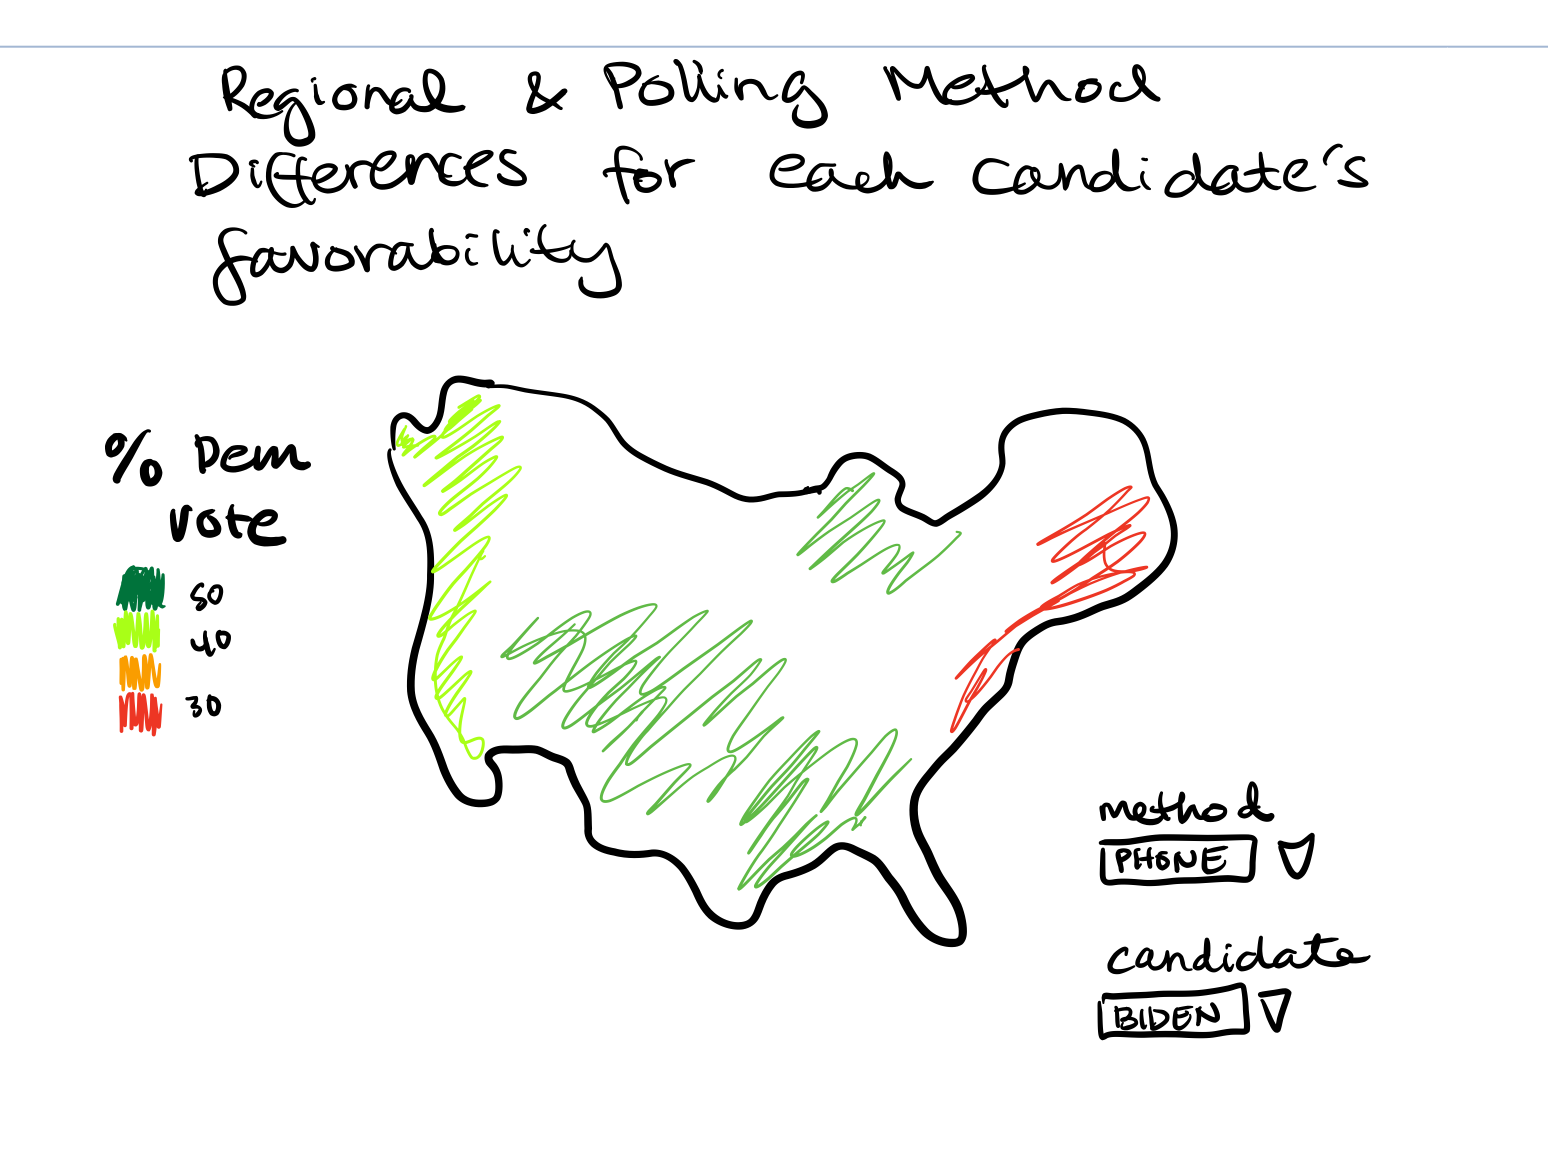 Regional & Polling Method
Differences for each candidate's
favorability
% Dem
vote
50
40
30
method
PHONE
candidate
BIDEN